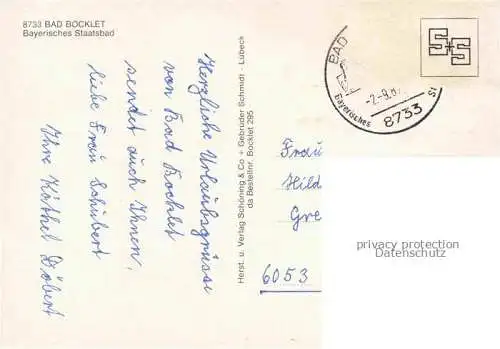 8733 BAD BOCKLET
Bayerisches Staatsbad
Herzliche Urlaubsgrüsse
von Bad Bocklet
sendet auch Ihnen,
liebe Frau Schubert
Ihre Käthel Döbert
Herst. u. Verlag Schöning & Co + Gebrüder Schmidt · Lübeck
da Bestellnr. Bocklet 295
BAD
Bayerisches
8733
S+S
Frau
Hild
Gre
6053
privacy protection
Datenschutz